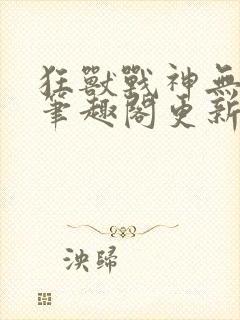 狂獸戰神無
筆趣閣更新
泱歸